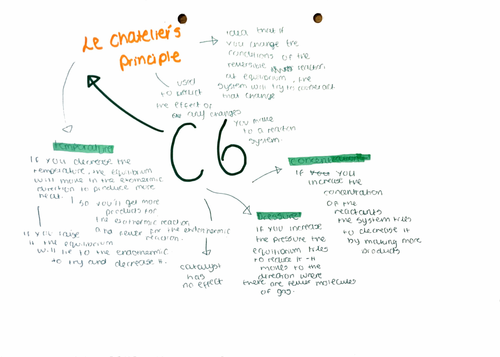 Le Chatelier's
Principle
idea that if
you change the
conditions of the
reversible reaction
at equilibrium, the
system will try to counteract
that change
used
to predict
the effect of
any changes
you make
to a reaction
system.
C6
temperature
If you decrease the
temperature, the equilibrium
will move in the exothermic
direction to produce more
heat.
so you'll get more
products for
the exothermic reaction
and fewer for the endothermic
reaction.
if you raise
it the equilibrium
will to the endothermic
to try and decrease it.
catalyst
has
no effect
pressure
if you increase
the pressure the
equilibrium tries
to reduce it - it
moves to the
direction where
there are fewer molecules
of gas.
concentration
if you
increase the
concentration
of the
reactants
the system tries
to decrease it
by making more
products